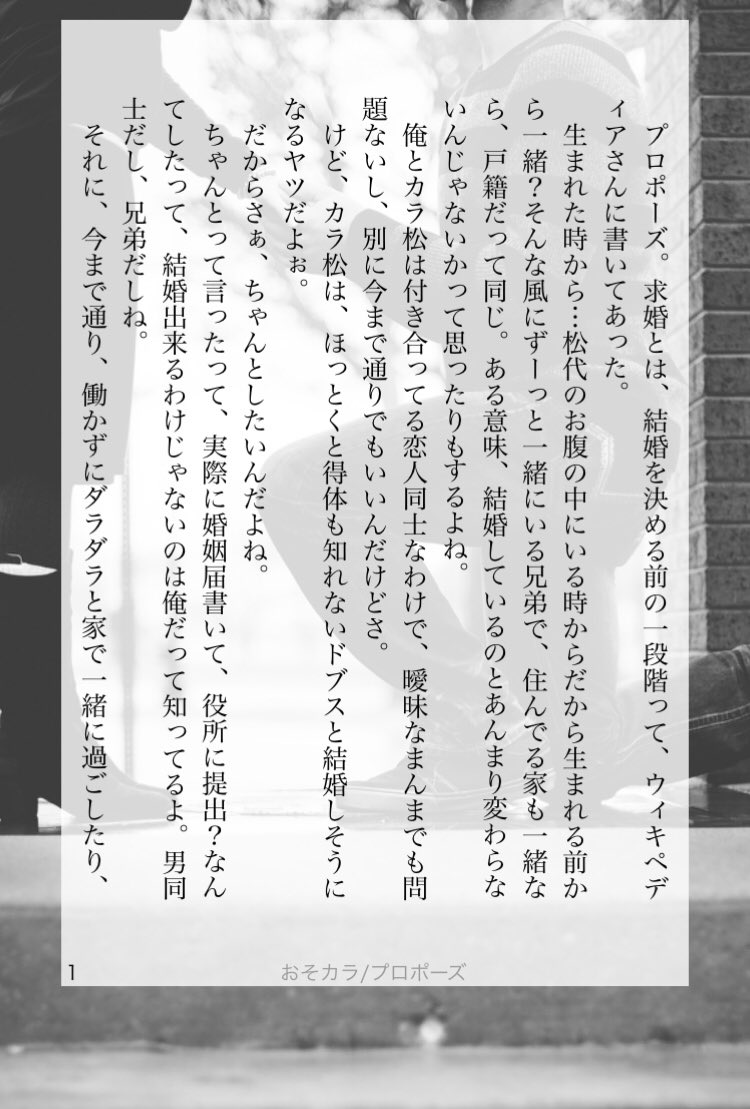 プロポーズ。求婚とは、結婚を決める前の一段階って、ウィキペデ
ィアさんに書いてあった。
　生まれた時から…松代のお腹の中にいる時からだから生まれる前か
ら一緒？そんな風にずーっと一緒にいる兄弟で、住んでる家も一緒な
ら、戸籍だって同じ。ある意味、結婚しているのとあんまり変わらな
いんじゃないかって思ったりもするよね。
　俺とカラ松は付き合ってる恋人同士なわけで、曖昧なまんまでも問
題ないし、別に今まで通りでもいいんだけどさ。
　けど、カラ松は、ほっとくと得体も知れないドブスと結婚しそうに
なるヤツだよぉ。
　だからさぁ、ちゃんとしたいんだよね。
　ちゃんとって言ったって、実際に婚姻届書いて、役所に提出？なん
てしたって、結婚出来るわけじゃないのは俺だって知ってるよ。男同
士だし、兄弟だしね。
　それに、今まで通り、働かずにダラダラと家で一緒に過ごしたり、
おそカラ/プロポーズ
1